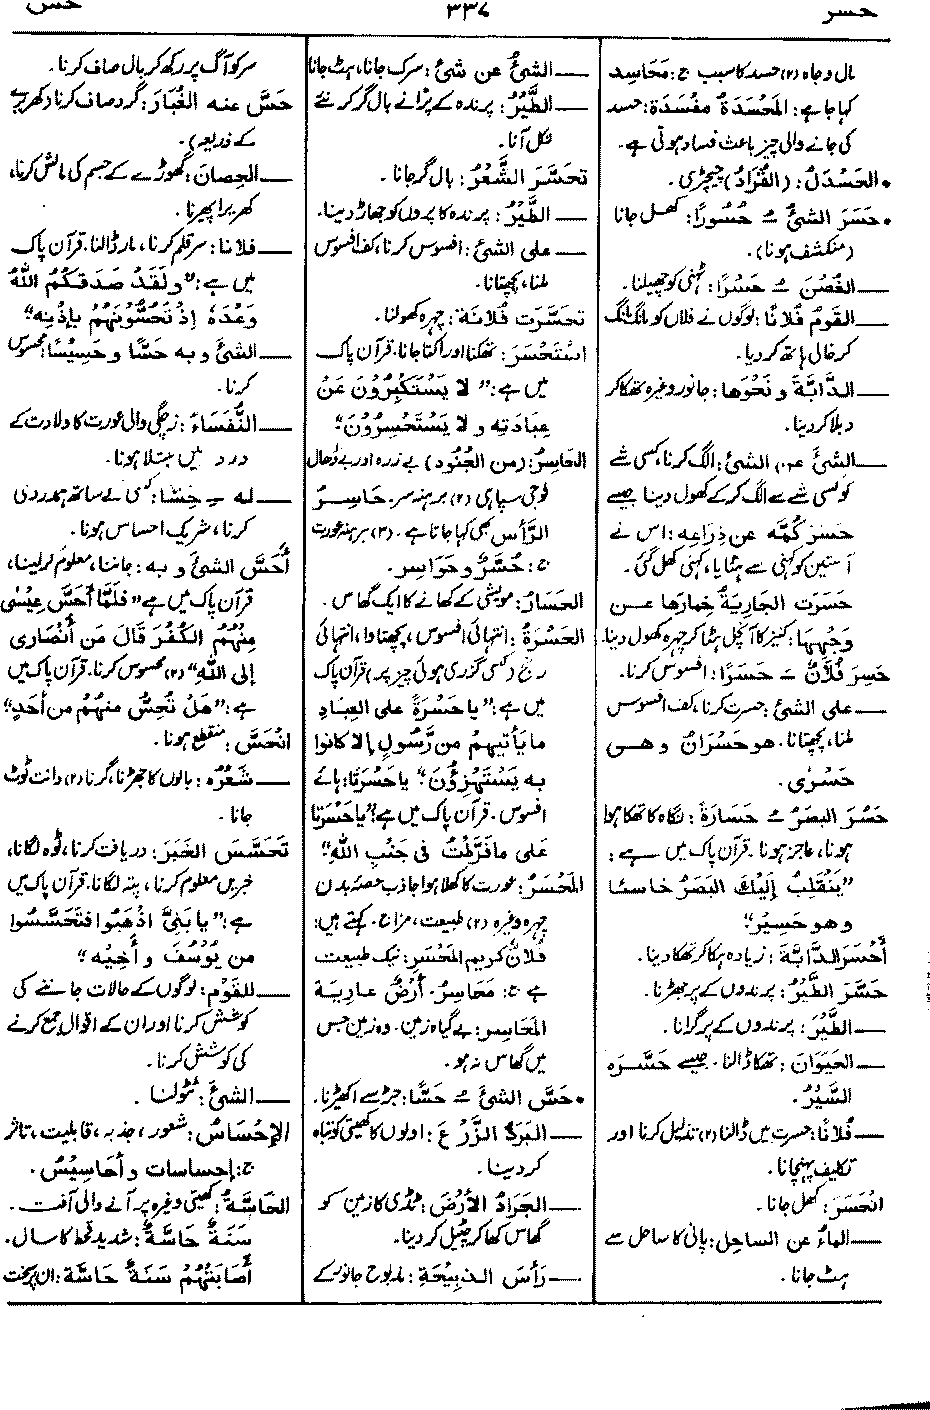 حسر
۳۳۷
حس
مال و جاہ (۲) حسد کا سبب ج: مَحَاسِد
کہا جاتا ہے: المَحْسَدَةُ مَفْسَدَة: حسد
کی جانے والی چیز باعث فساد ہوتی ہے۔
• الحَسْدَلُ: (القُرَادُ) چیچڑی۔
• حَسَرَ الشیئُ ـُ حُسُورًا: کھل جانا
(منکشف ہونا)۔
— الغُصْنَ ـُ حَسْرًا: ٹہنی کو چھیلنا۔
— القومُ فُلَانًا: لوگوں نے فلاں کو مانگ مانگ
کر خالی ہاتھ کر دیا۔
— الدَّابَّةَ و نَحْوَها: جانور وغیرہ تھکا کر
دبلا کر دینا۔
— الشیئَ عن الشیئ: الگ کرنا، کسی شے
کو کسی شے سے الگ کر کے کھول دینا جیسے
حَسَرَ كُمَّه عن ذِرَاعِه: اس نے
آستین کو کہنی سے ہٹایا، کہنی کھل گئی۔
حَسَرَت الجَارِيَةُ خِمارَها عن
وَجْهِها: کنیز کا آنچل ہٹا کر چہرہ کھول دینا۔
حَسِرَ فُلَانٌ ـَ حَسَرًا: افسوس کرنا۔
— علی الشیئ: حسرت کرنا، کف افسوس
ملنا، پچھتانا۔ هو حَسْرَانُ و هی
حَسْرٰی۔
حَسُرَ البصَرُ ـُ حَسَارَةً: نگاہ کا تھکا ہوا
ہونا، عاجز ہونا۔ قرآن پاک میں ہے:
"يَنْقَلِبْ إِلَيْكَ البَصَرُ خاسئا
و هو حَسِيْر"؛
أَحْسَرَ الدَّابَّةَ: زیادہ ہکا کر تھکا دینا۔
حَسَّرَ الطَّيْرُ: پرندوں کے پر جھڑنا۔
— الطَّيْرَ: پرندوں کے پر گرانا۔
— الحَيَوَانَ: تھکا ڈالنا۔ جیسے حَسَّرَه
السَّيْرُ۔
— فُلَانًا: حسرت میں ڈالنا (۲) تذلیل کرنا اور
تکلیف پہنچانا۔
انْحَسَرَ: کھل جانا۔
— الماءُ عن الساحل: پانی کا ساحل سے
ہٹ جانا۔
— الشیئُ عن شیئ: سرک جانا، ہٹ جانا
— الطَّيْرُ: پرندہ کے پرانے بال گر کر نئے
نکل آنا۔
تَحَسَّرَ الشَّعْرُ: بال گر جانا۔
— الطَّيْرُ: پرندہ کا پروں کو جھاڑ دینا۔
— علی الشیئ: افسوس کرنا، کف افسوس
ملنا، پچھتانا۔
تَحَسَّرَت فُلَانَة: چہرہ کھولنا۔
اسْتَحْسَرَ: تھکنا اور اکتا جانا۔ قرآن پاک
میں ہے: "لا يَسْتَكْبِرُونَ عَنْ
عِبَادَتِه و لا يَسْتَحْسِرُوْنَ"؛
الحَاسِرُ: (من الجُنُود) بے زرہ اور بے ڈھال
فوجی سپاہی (۲) برہنہ سر۔ حَاسِرُ
الرَّأْس بھی کہا جاتا ہے۔ (۳) برہنہ عورت
ج: حُسَّرٌ و حَوَاسِر۔
الحَسَارُ: مویشی کے کھانے کا ایک گھاس۔
الحَسْرَةُ: انتہائی افسوس، پچھتاوا، انتہائی
رنج (کسی گزری ہوئی چیز پر) قرآن پاک
میں ہے: "یا حَسْرَةً علی العِبادِ
ما يَأْتِيهِم من رَّسُولٍ إلا كانوا
به يَسْتَهْزِؤُنَ"؛ یا حَسْرَتَا: ہائے
افسوس۔ قرآن پاک میں ہے: "یا حَسْرَتَا
عَلی ما فَرَّطْتُ فی جَنْبِ اللهِ"
المَحْسَرُ: عورت کا کھلا ہوا جاذب حصۂ بدن
چہرہ وغیرہ (۲) طبیعت، مزاج۔ کہتے ہیں:
فُلَانٌ كريم المَحْسَر: نیک طبیعت
ہے ج: مَحَاسِرُ۔ أَرْضٌ عارِيَة
المَحَاسِر: بے گیاہ زمین۔ وہ زمین جس
میں گھاس نہ ہو۔
• حَسَّ الشیئَ ـُ حَسًّا: جڑ سے اکھیڑنا۔
— البَرَدُ الزَّرْعَ: اولوں کا کھیتی کو تباہ
کر دینا۔
— الجَرَادُ الأَرْضَ: ٹڈی کا زمین کو
گھاس کھا کر چٹیل کر دینا۔
— رَأْسَ الذَّبِيْحَةِ: مذبوح جانور کے
سر کو آگ پر رکھ کر بال صاف کرنا۔
حَسَّ عنه الغُبَارَ: گرد صاف کرنا (کھریرے
کے ذریعہ)۔
— الحِصانَ: گھوڑے کے جسم کی مالش کرنا،
کھریرا پھیرنا۔
— فلانا: سر قلم کرنا، مار ڈالنا۔ قرآن پاک
میں ہے: "ولَقَدْ صَدَقَكُمُ اللهُ
وَعْدَهٗ إِذْ تَحُسُّوْنَهُمْ بِإذْنِه"
— الشیئَ و به حَسًّا و حَسِيْسًا: محسوس
کرنا۔
— النُّفَسَاءُ: زچگی والی عورت کا ولادت کے
درد میں مبتلا ہونا۔
— له ـِ حِسًّا: کسی کے ساتھ ہمدردی
کرنا، شریک احساس ہونا۔
أَحَسَّ الشیئَ و به: جاننا، معلوم کر لینا،
قرآن پاک میں ہے "فَلَمَّا أَحَسَّ عِيْسٰی
مِنْهُمُ الكُفْرَ قَالَ مَن أَنْصَارِی
إلی اللهِ" (۲) محسوس کرنا۔ قرآن پاک میں
ہے: "هَلْ تُحِسُّ مِنهُمْ من أَحَدٍ"؛
انْحَسَّ: منقطع ہونا۔
— شَعْرُه: بالوں کا جھڑنا، گرنا (۲) دانت ٹوٹ
جانا۔
تَحَسَّسَ الخَبَرَ: دریافت کرنا، ٹوہ لگانا،
خبریں معلوم کرنا، پتہ لگانا۔ قرآن پاک میں
ہے: "یا بَنِیَّ اذْهَبُوا فَتَحَسَّسُوا
من يُوْسُفَ و أَخِيْه"
— للقَوْم: لوگوں کے حالات جاننے کی
کوشش کرنا اور ان کے اقوال جمع کرنے
کی کوشش کرنا۔
— الشیئَ: ٹٹولنا۔
الإحْسَاسُ: شعور، جذبہ، قابلیت، تاثر
ج: إحساسات و أَحَاسِيْسُ۔
الحَاسَّةُ: کھیتی وغیرہ پر آنے والی آفت۔
سَنَةٌ حَاسَّةٌ: شدید قحط کا سال۔
أَصَابَتْهُمْ سَنَةٌ حَاسَّة: ان پر سخت